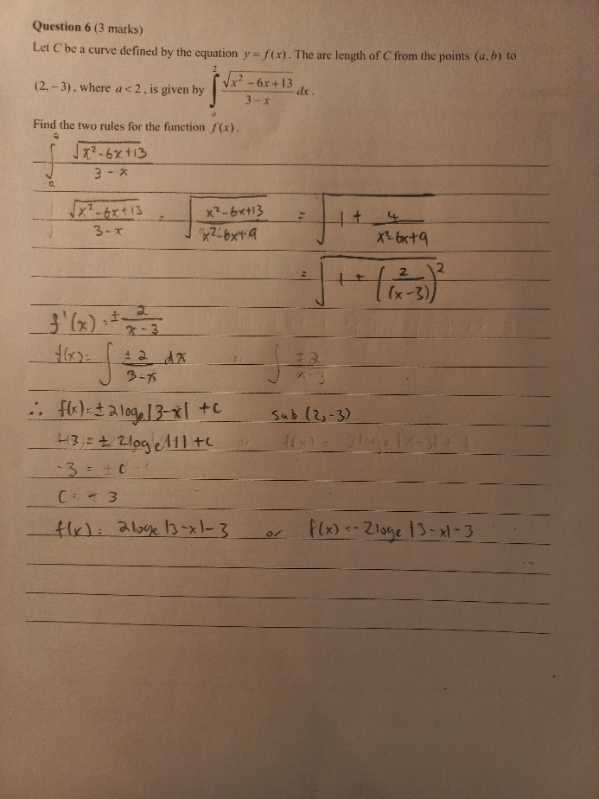 Question 6 (3 marks)
Let C be a curve defined by the equation y = f(x). The arc length of C from the points (a, b) to
(2, −3), where a < 2, is given by ∫_a^2 √(x² − 6x + 13) / (3 − x) dx.
Find the two rules for the function f(x).
∫_a^2 √(x²-6x+13) / (3-x)
√(x²-6x+13) / (3-x) = √((x²-6x+13) / (x²-6x+9)) = √(1 + 4/(x²-6x+9))
= √(1 + (2/(x-3))²)
f'(x) = ± 2/(x-3)
f(x) = ∫ ±2/(3-x) dx
∴ f(x) = ±2logₑ|3-x| + c sub (2,-3)
-3 = ± 2logₑ|1| + c
-3 = c
C = -3
f(x) = 2logₑ|3-x|-3 or f(x) = -2logₑ|3-x|-3